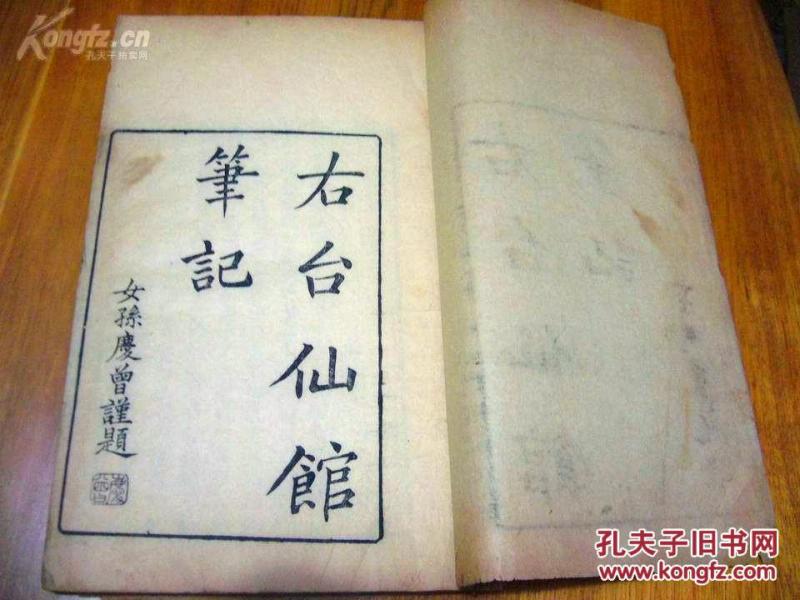 Kongfz.cn
孔夫子拍卖网
右台仙館
筆記
女孫慶曾謹題
孔夫子旧书网
www.kongfz.com